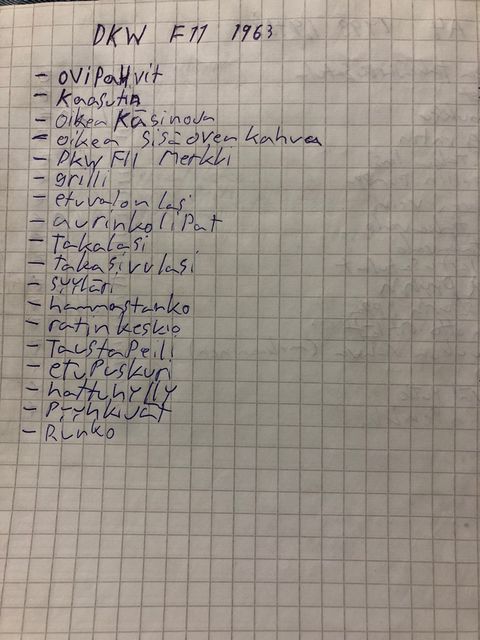 DKW F11 1963
- oviPahvit
- Kaasutin
- oikea Käsinoja
- oikea sisäoven kahva
- DKW F11 Merkki
- grilli
- etuvalon lasi
- aurinkoliPat
- Takalasi
- takasivulasi
- syyläri
- hammastanko
- ratin keskiö
- TaustaPeili
- etuPuskuri
- hattuhylly
- Pyyhkivät
- Runko